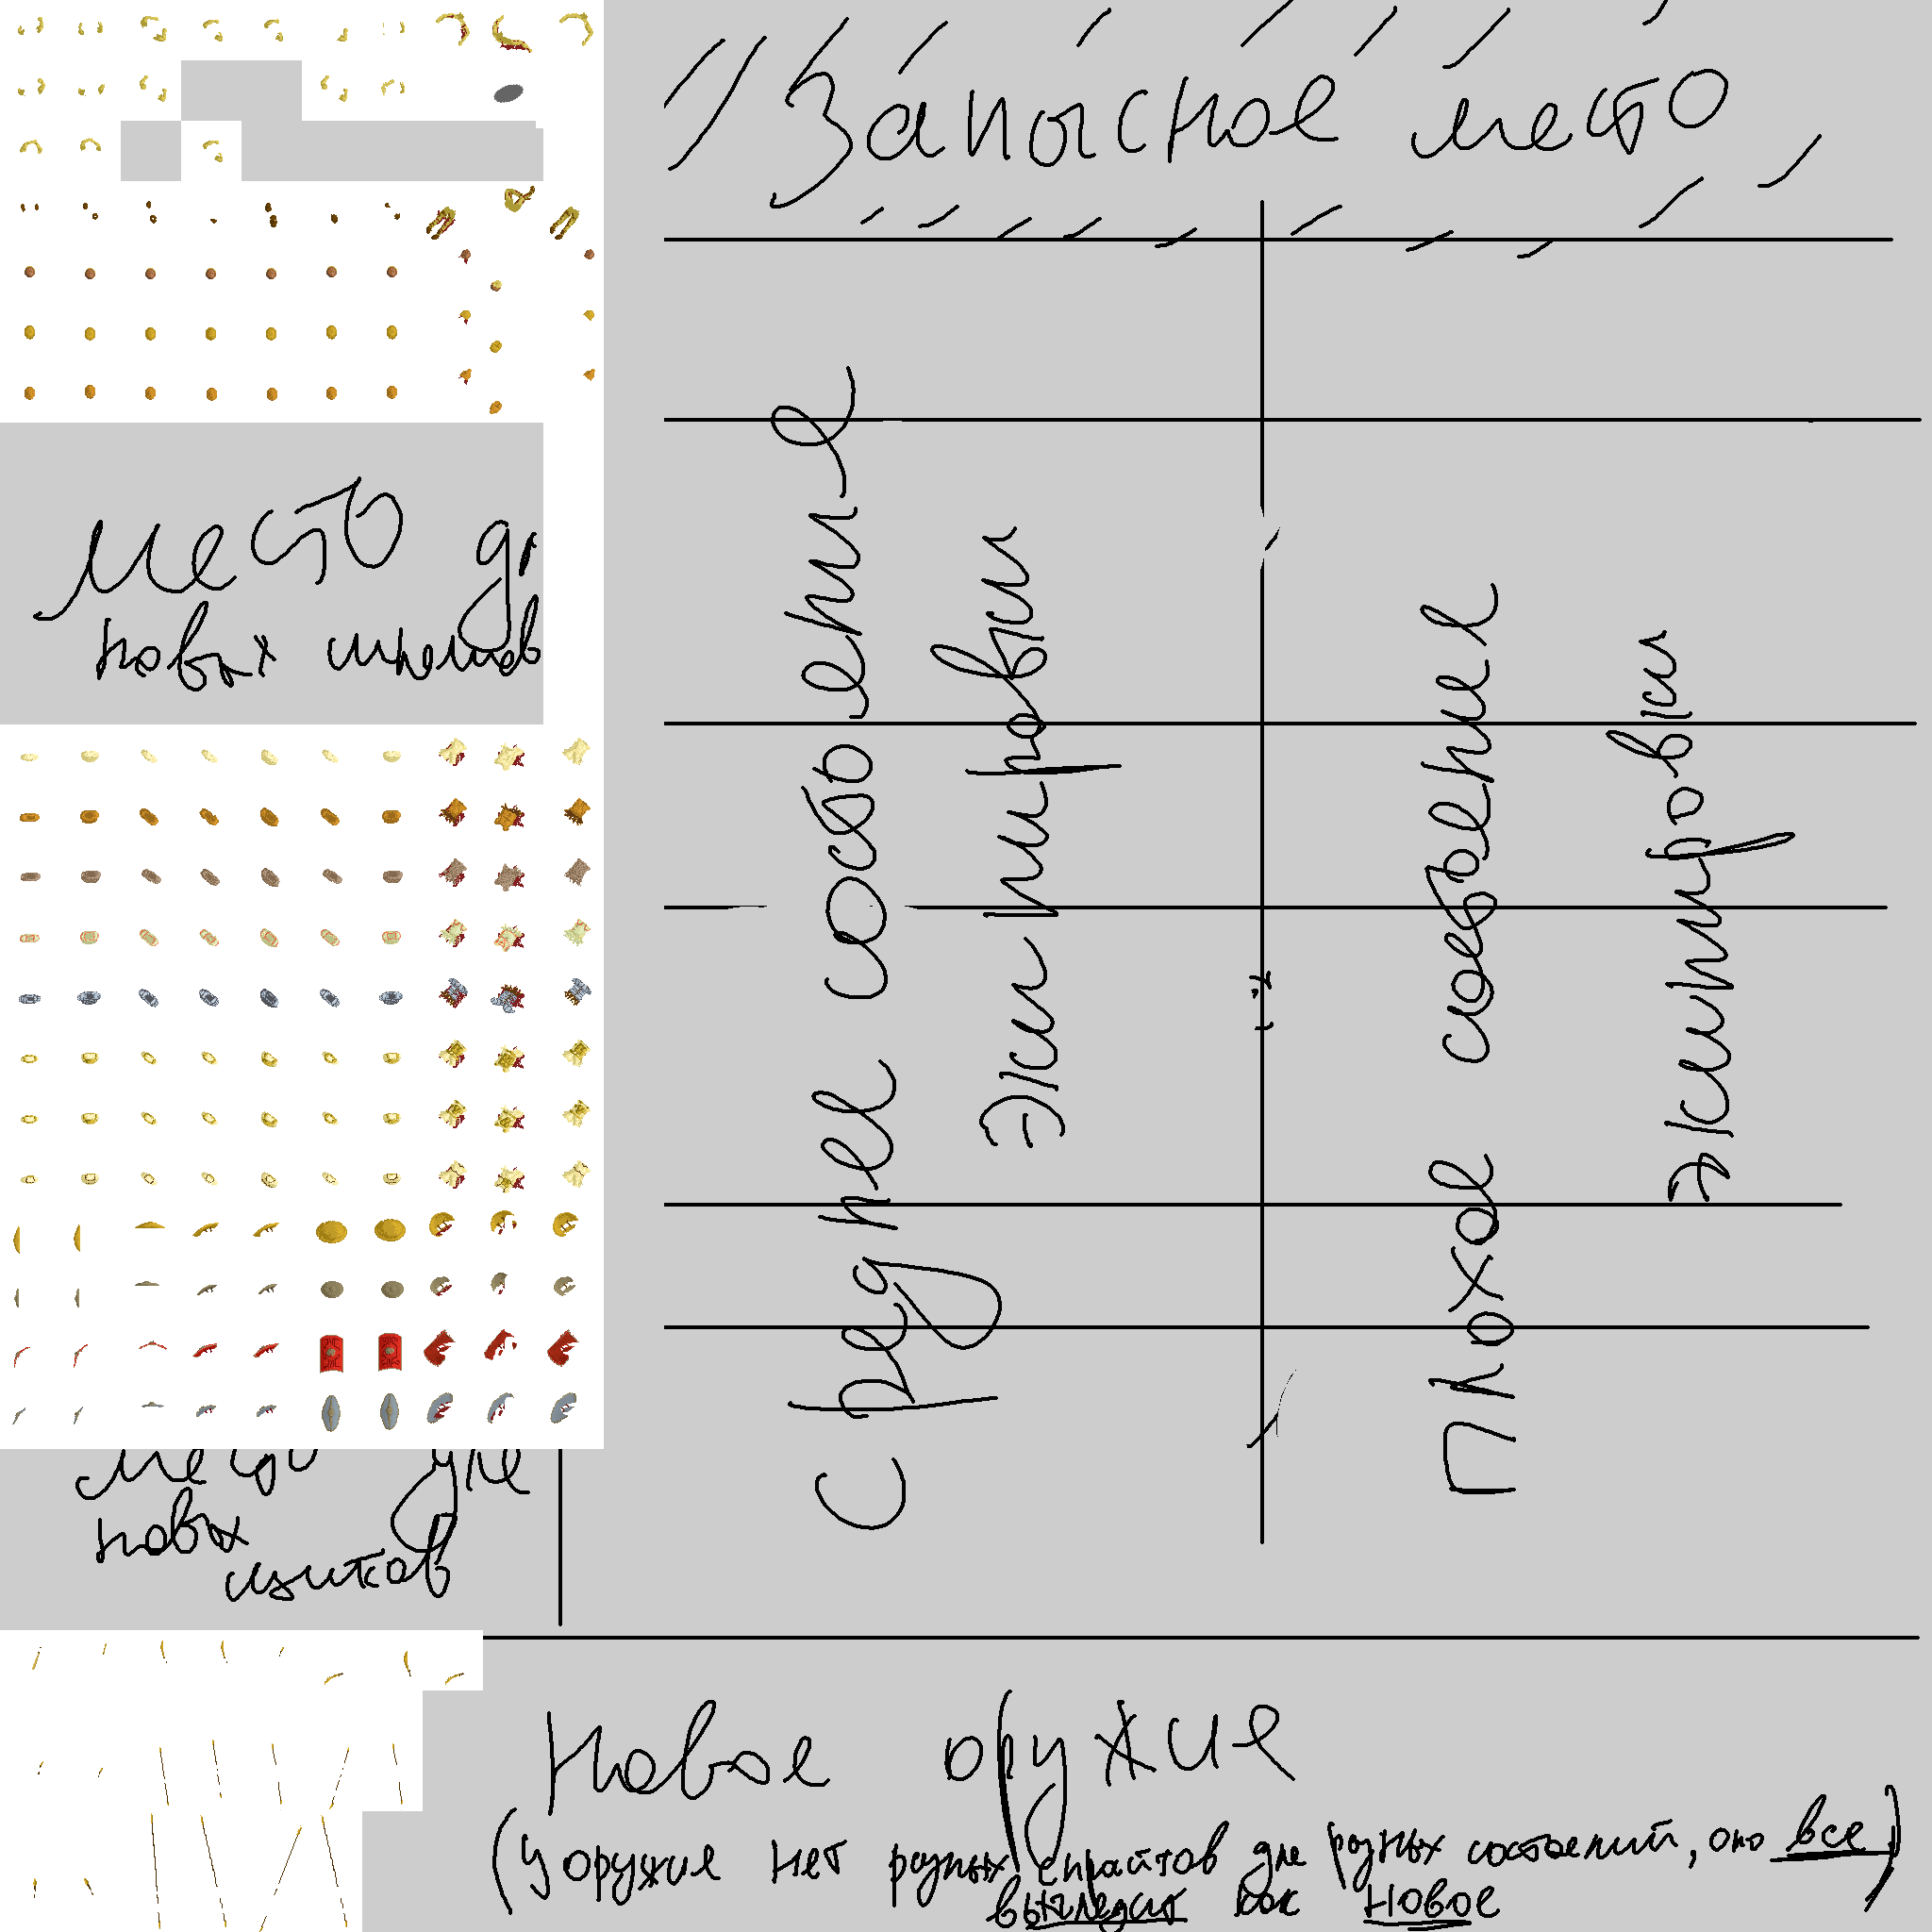 Запасное место
место
новых шлемов
Среднее состояние
экипировки
Плохое состояние
экипировки
место для
новых
щитков
Новое оружие
(у оружия нет разных спрайтов для разных состояний, оно все)
выглядит как новое